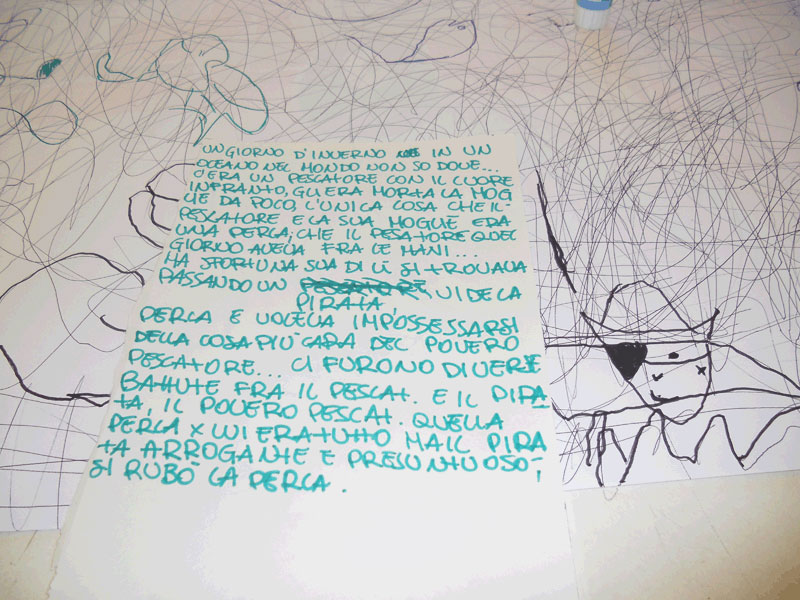 UN GIORNO D'INVERNO IN UN
OCEANO NEL MONDO NON SO DOVE...
C'ERA UN PESCATORE CON IL CUORE
INFRANTO, GLI ERA MORTA LA MOG
LIE DA POCO, L'UNICA COSA CHE IL
PESCATORE E LA SUA MOGLIE ERA
UNA PERLA, CHE IL PESATORE QUEL
GIORNO AVEVA FRA LE MANI...
MA SFORTUNA SUA DI LÌ SI TROVAVA
PASSANDO UN PESCATORE VIDE LA
PIRATA,
PERLA E VOLEVA IMPOSSESSARSI
DELLA COSA PIÙ CARA DEL POVERO
PESCATORE... CI FURONO DIVERSE
BATTUTE FRA IL PESCAT. E IL PIRA
TA, IL POVERO PESCAT. QUELLA
PERLA X LUI ERA TUTTO MA IL PIRA
TA ARROGANTE E PRESUNTUOSO,
SI RUBÒ LA PERLA.